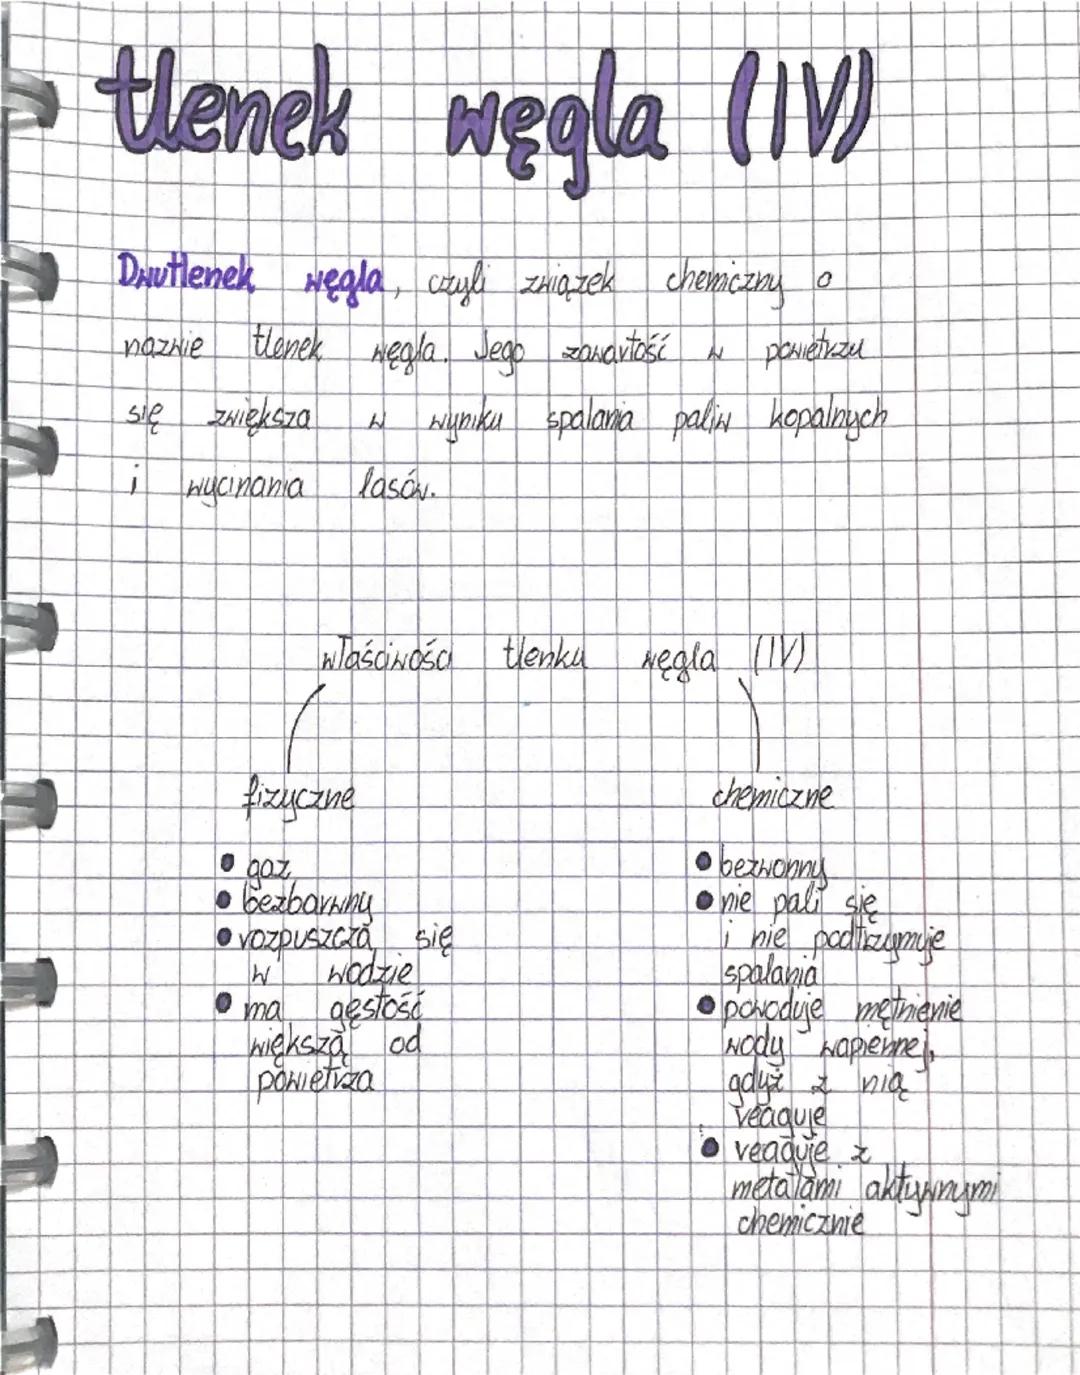 tlenek węgla (IV)
Dwutlenek węgla, czyli związek chemiczny o
nazwie tlenek węgla. Jego zawartość w powietrzu
się zwiększa w wyniku spalania paliw kopalnych
i wycinania lasów.
właściwości tlenku węgla (IV)
fizyczne
• gaz
• bezbarwny
• rozpuszcza się
w wodzie
• ma gęstość
większą od
powietrza
chemiczne
• bezwonny
• nie pali się
i nie podtrzymuje
spalania
• powoduje mętnienie
wody wapiennej,
gdyż z nią
reaguje
• reaguje z
metalami aktywnymi
chemicznie